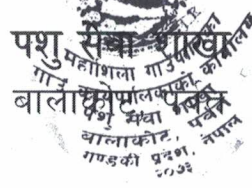 पशु सेवा शाखा
बालाकोट पर्वत
महाशिला गाउँपालिका
गाउँ कार्यपालिकाको कार्यालय
पशु सेवा
बालाकोट, पर्वत
गण्डकी प्रदेश, नेपाल
२०७३